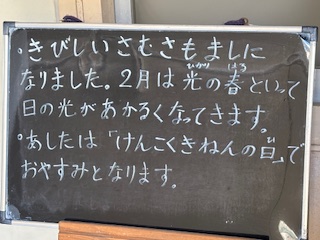 ・きびしいさむさもましに
なりました。2月は光の春といって
日の光があかるくなってきます。
・あしたは「けんこくきねんの日」で
おやすみとなります。